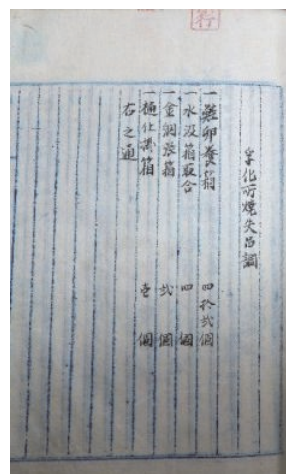 孚化所焼失品調
一 鮭卵養箱 四拾弐個
一 水汲箱取合 四個
一 金網張箱 弐個
一 樋仕掛箱 壱個
右之通